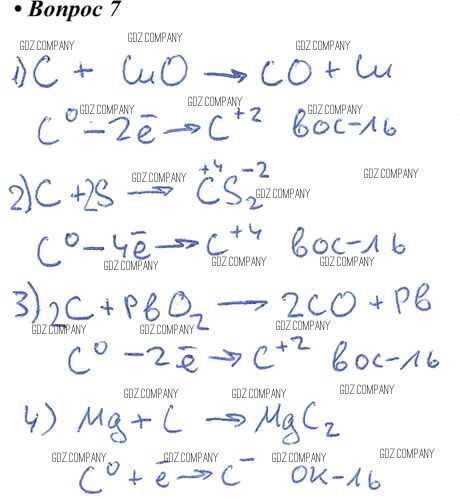 • Вопрос 7
GDZ.COMPANY GDZ.COMPANY GDZ.COMPANY
1) C + CuO → CO + Cu
GDZ.COMPANY GDZ.COMPANY GDZ.COMPANY
C⁰ – 2ē → C⁺² вос-ль
GDZ.COMPANY GDZ.COMPANY GDZ.COMPANY
2) C + 2S → C⁺⁴S₂⁻²
C⁰ – 4ē → C⁺⁴ вос-ль
GDZ.COMPANY GDZ.COMPANY GDZ.COMPANY
3) 2C + PbO₂ → 2CO + Pb
GDZ.COMPANY GDZ.COMPANY GDZ.COMPANY
C⁰ – 2ē → C⁺² вос-ль
GDZ.COMPANY GDZ.COMPANY GDZ.COMPANY
4) Mg + C → MgC₂
GDZ.COMPANY GDZ.COMPANY GDZ.COMPANY
C⁰ + ē → C⁻ ок-ль